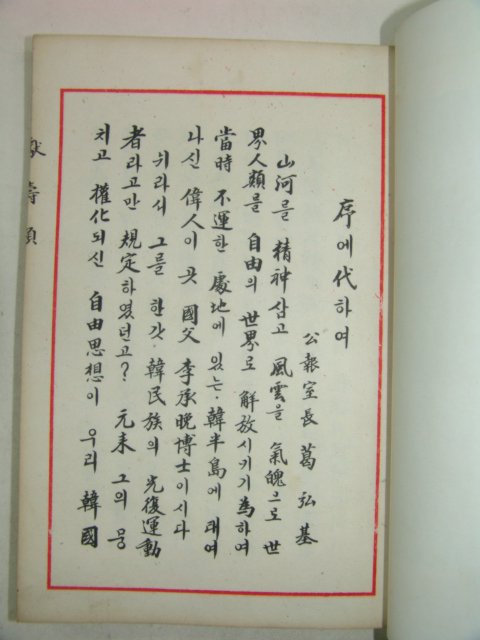 序에代하여
公報室長 葛弘基
山河를 精神삼고 風雲을 氣魄으로 世
界人類를 自由의 世界로 解放시키기 爲하여
當時 不運한 處地에 있는·韓半島에 태여
나신 偉人이 곳 國父 李承晩博士이시다
뉘라서 그를 한갓 韓民族의 光復運動
者라고만 規定하였던고? 元来 그의 뭉
치고 權化되신 自由思想이 우리 韓國
壽頌